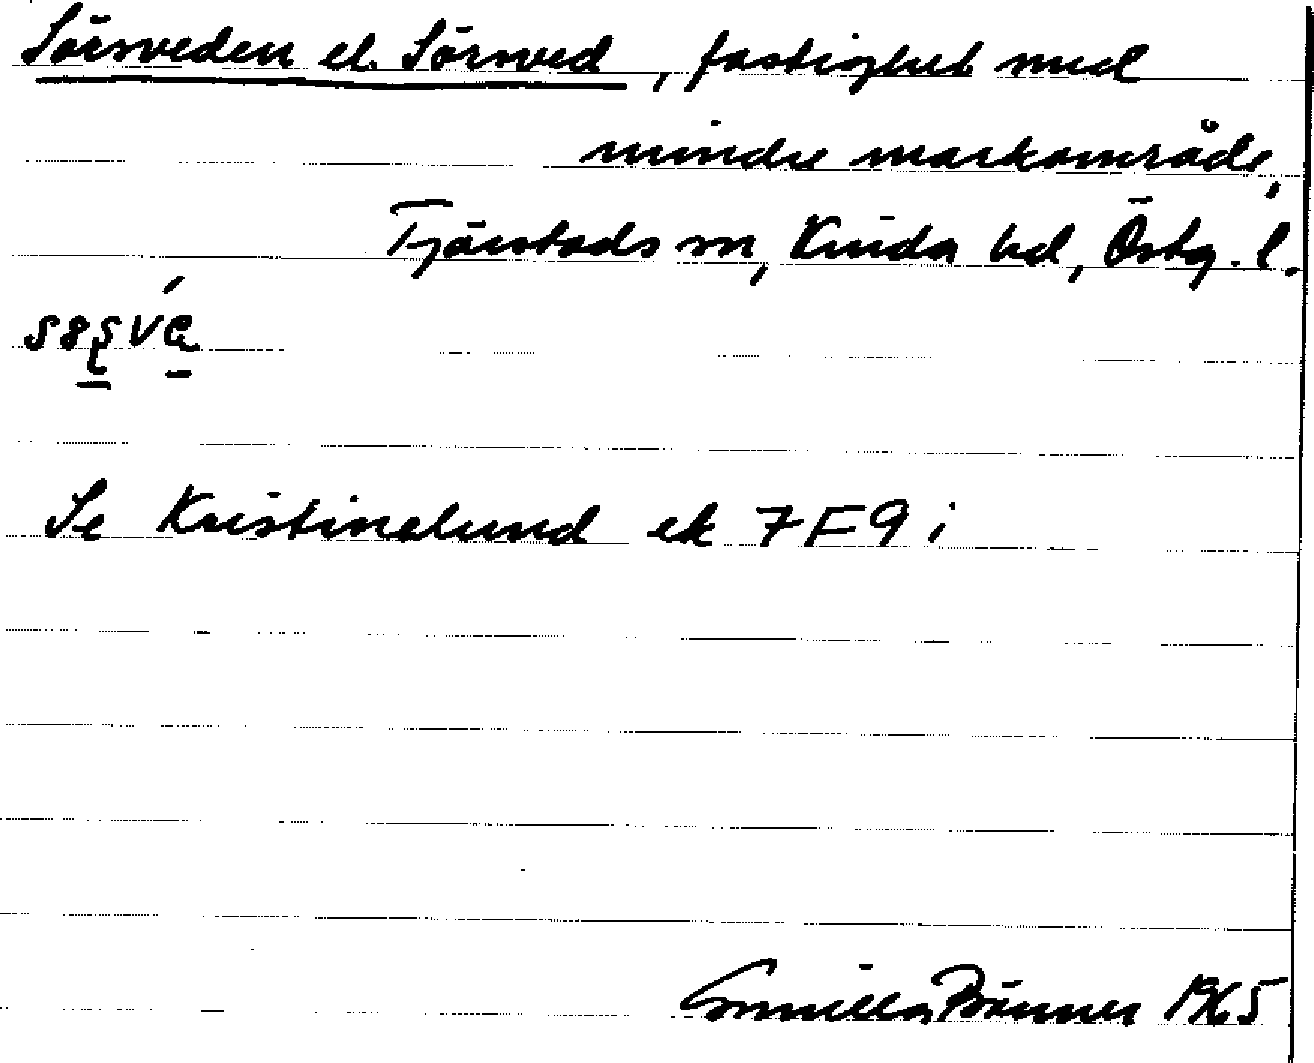 Sörsveden el. Sörsved, fastighet med
mindre markområde,
Tjärstads sn, Kinda hd, Östg. l.
Se Kristinelund ek 7F9i
Gunilla 1965